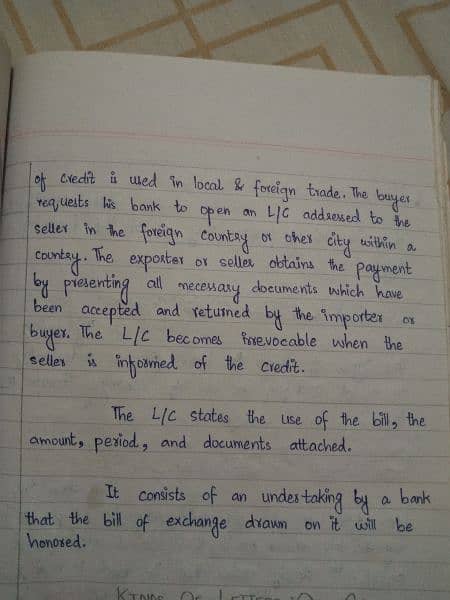 of credit is used in local & foreign trade. The buyer
requests his bank to open an L/C addressed to the
seller in the foreign country or other city within a
country. The exporter or seller obtains the payment
by presenting all necessary documents which have
been accepted and returned by the importer or
buyer. The L/C becomes irrevocable when the
seller is informed of the credit.
The L/C states the use of the bill, the
amount, period, and documents attached.
It consists of an undertaking by a bank
that the bill of exchange drawn on it will be
honored.
KINDS OF LETTERS OF